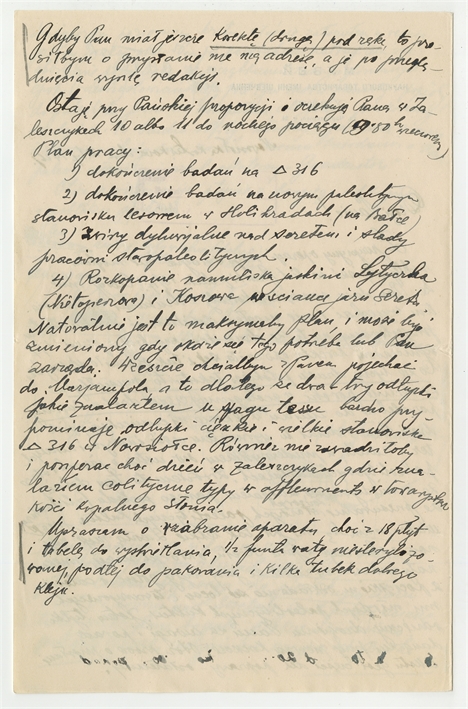 Gdyby Pan miał jeszcze Korektę (drugą) pod ręką to pro-
siłbym o przysłanie na mój adres, a ja po przeglą-
dnięciu wyślę redakcji.
Ostaję przy Pańskiej propozycji i oczekuję Pana w Za-
leszczykach 10 albo 11 do nocnego pociągu (9 80 h wieczorem)
Plan pracy:
1) dokończenie badań na △ 316
2) dokończenie badań na nowym paleolitycznym
stanowisku lessowem w Holihradach (na Bałce)
3) żwiry dyluwialne nad Seretem i ślady
pracowni staropaleolitycznych.
4) Rozkopanie namuliska jaskini Lytyczka
(Netoperowa) i w ściance jaru Seretu
Naturalnie jest to maksymalny plan i może być
zmieniony gdy skaże się tego potrzeba lub Pan
zarządzi. chciałbym z Panem pojechać
do Marjampola a to dlatego że dwa - trzy odłupki
jakie znalazłem w ciągu lessu bardzo przy-
pominają odłupki ciężkie i wielkie stanowiska
△ 316 w Nowosiółce. Również nie zawadziłoby
i poszperać choć dzień w Zaleszczykach gdzie zna-
lazłem eolityczne typy w affleurements w towarzystwie
kości kopalnego Słonia.
Upraszam o zabranie aparatu, choć z 18 płyt
i tabelę do wyświetlania, 1/2 funta waty niesterylizo-
wanej, podłej do pakowania i kilka tubek dobrego
kleju.